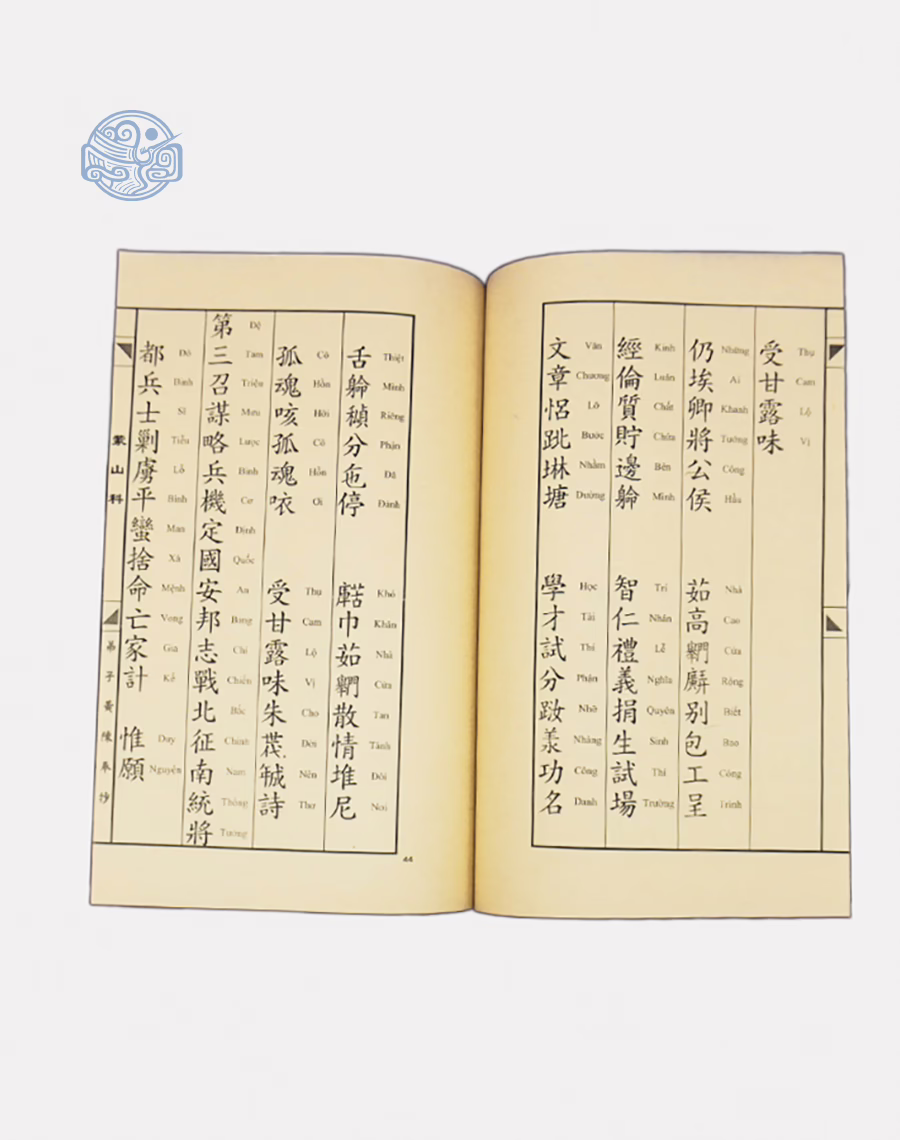 受甘露味
Thụ Cam Lộ Vị
仍埃卿將公侯 茹高𨷯𢌌別包工呈
Những Ai Khanh Tướng Công Hầu Nhà Cao Cửa Rộng Biết Bao Công Trình
經倫質貯邊躬 智仁禮義捐生試場
Kinh Luân Chất Chứa Bên Mình Trí Nhân Lễ Nghĩa Quyên Sinh Thí Trường
文章𨀈琳塘 學才試分功名
Văn Chương Lỡ Bước Nhầm Đường Học Tài Thi Phận Nhỡ Nhàng Công Danh
舌躬分㐌停 巾茹𨷯散情堆尼
Thiệt Mình Riêng Phận Đã Đành Khó Khăn Nhà Cửa Tan Tành Đôi Nơi
孤魂咳孤魂㕵 受甘露味朱詩
Cô Hồn Hỡi Cô Hồn Ơi Thụ Cam Lộ Vị Cho Đời Nên Thơ
第三召謀略兵機定國安邦志戰北征南統將
Đệ Tam Triệu Mưu Lược Binh Cơ Định Quốc An Bang Chí Chiến Bắc Chinh Nam Thống Tướng
都兵士剿虜平蠻捨命亡家計 惟願
Đô Binh Sĩ Tiễu Lỗ Bình Man Xả Mệnh Vong Gia Kế Duy Nguyện
蒙山科
弟子黃陳奉抄
44